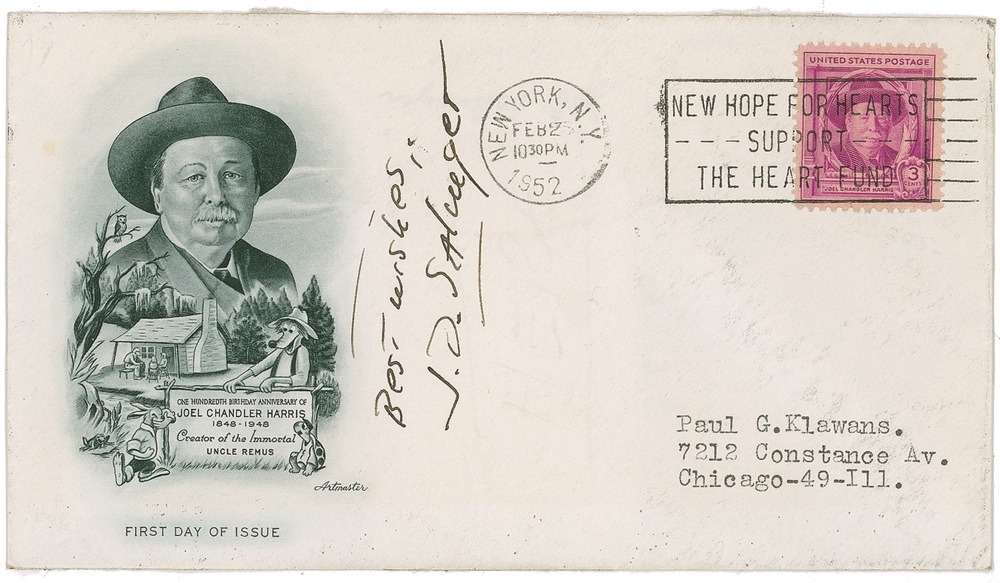 ONE HUNDREDTH BIRTHDAY ANNIVERSARY OF
JOEL CHANDLER HARRIS
1848-1948
Creator of the Immortal
UNCLE REMUS
Artmaster
FIRST DAY OF ISSUE
Best wishes,
J. D. Salinger
NEW YORK, N.Y.
FEB 2
1030PM
1952
NEW HOPE FOR HEARTS
---SUPPORT---
THE HEART FUND
UNITED STATES POSTAGE
3
CENTS
JOEL CHANDLER HARRIS
Paul G.Klawans.
7212 Constance Av.
Chicago-49-Ill.